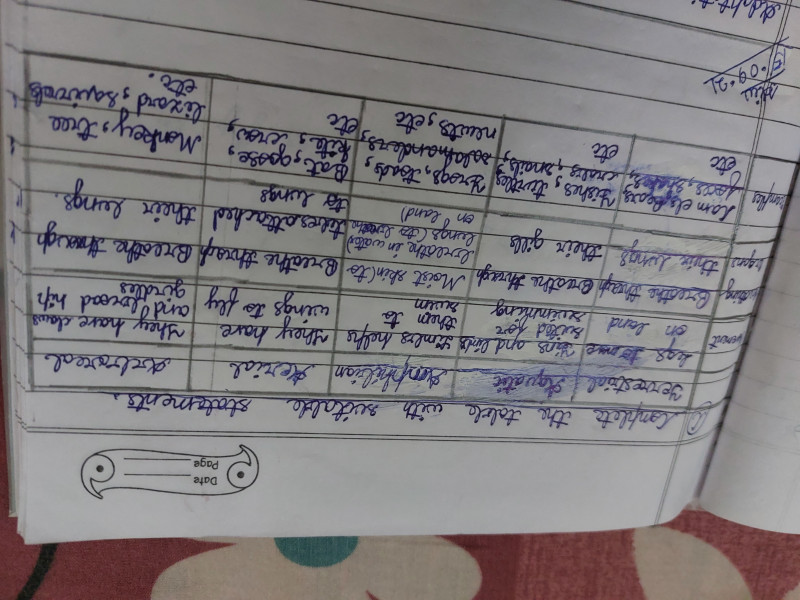 Date
Page
Complete the table with suitable statements.
Terrestrial Aquatic Amphibian Aerial Arboreal
legs to move on land
Fins and
suited for swimming
helps them to swim
They have wings to fly
They have claws and broad hip girdles
Breathe through their lungs
Breathe through their gills
Moist skin (to breathe in water) lungs (to on land)
Breathe through attached to lungs
Breathe through their lungs.
etc
Fishes, turtles, snails, etc
Frogs, toads, salamanders, newts, etc
Bat, goose, kite, crow, etc
Monkey, tree lizard, squirrels etc.